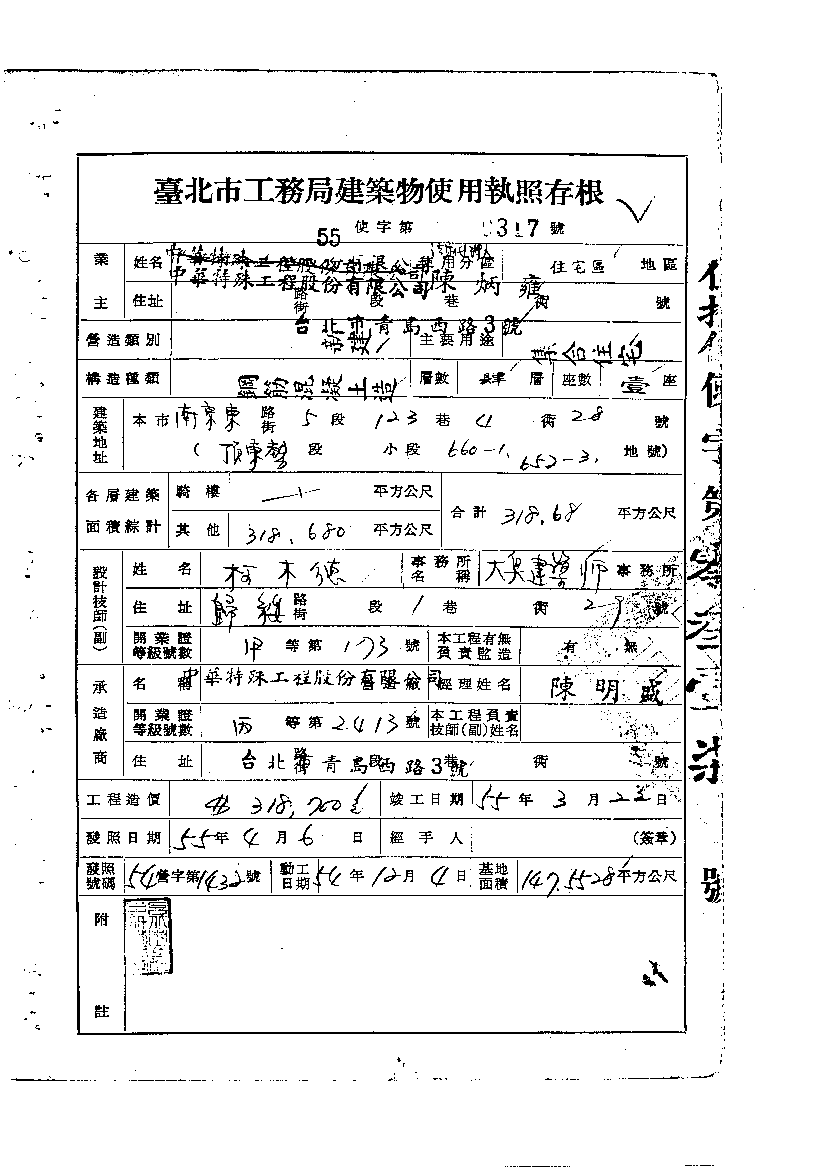 臺北市工務局建築物使用執照存根
55 使字第 0317 號
業主 姓名 中華特殊工程股份有限公司 陳炳雍 使用分區 住宅區 地區
住址 路街 段 巷 衖 號
台北市青島西路3號
營造類別 新建 主要用途 集合住宅
構造種類 鋼筋混凝土造 層數 肆 層 座數 壹 座
建築地址 本市 南京東 路街 5 段 123 巷 4 衖 28 號
( 頂東勢 段 小段 660-1, 652-3. 地號)
各層建築面積綜計 騎樓 平方公尺 合計 318.68 平方公尺
其他 318.680 平方公尺
設計技師(副) 姓名 柯木德 事務所名稱 建築師 事務所
住址 歸綏 路街 段 1 巷 衖 29 號
開業證等級號數 甲 等第 173 號 本工程有無負責監造 有 無
承造廠商 名稱 中華特殊工程股份有限公司 營造廠 經理姓名 陳明盛
開業證等級號數 丙 等第 2413 號 本工程負責技師(副)姓名
住址 台北市青島西路3號 路街 段 巷 衖 號
工程造價 318,700 竣工日期 55 年 3 月 23 日
發照日期 55 年 4 月 6 日 經手人 (簽章)
發照號碼 54 營字第 1432 號 動工日期 54 年 12 月 4 日 基地面積 147.5528 平方公尺
附註
使字第零叁壹柒號